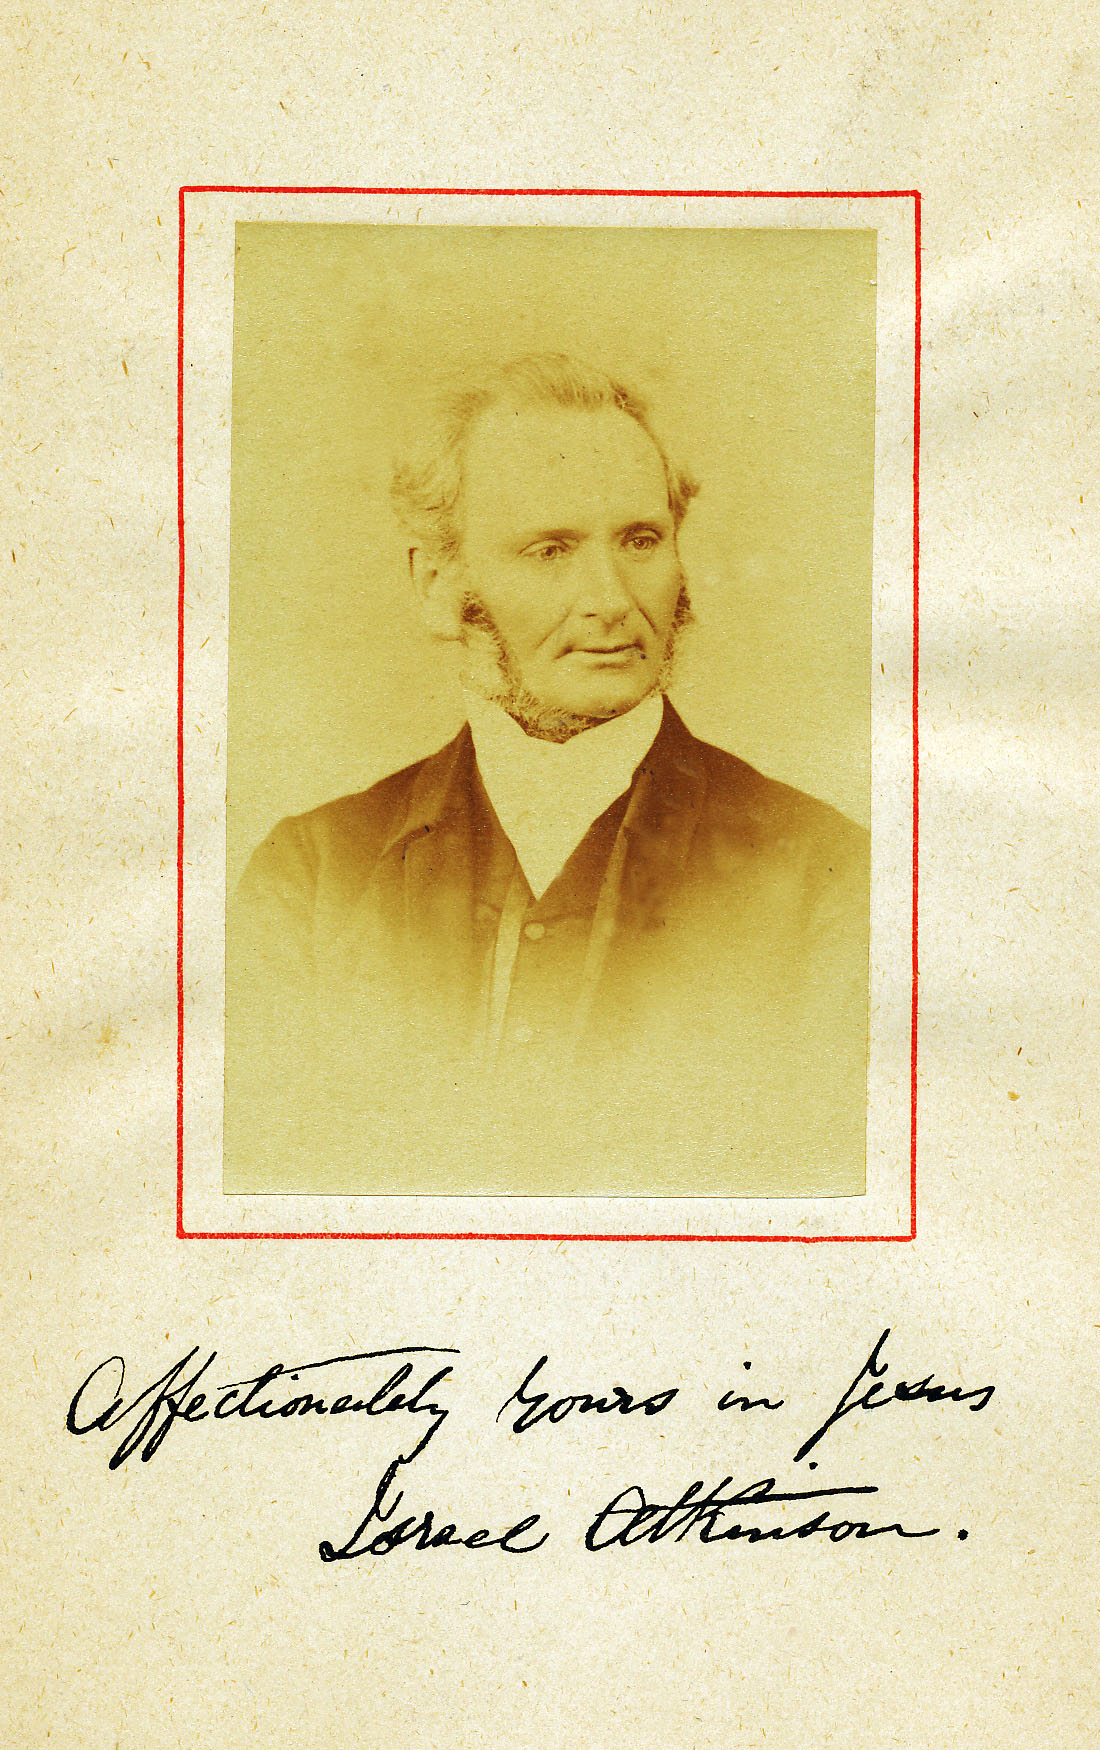 Affectionately Yours in Jesus
Israel Atkinson.